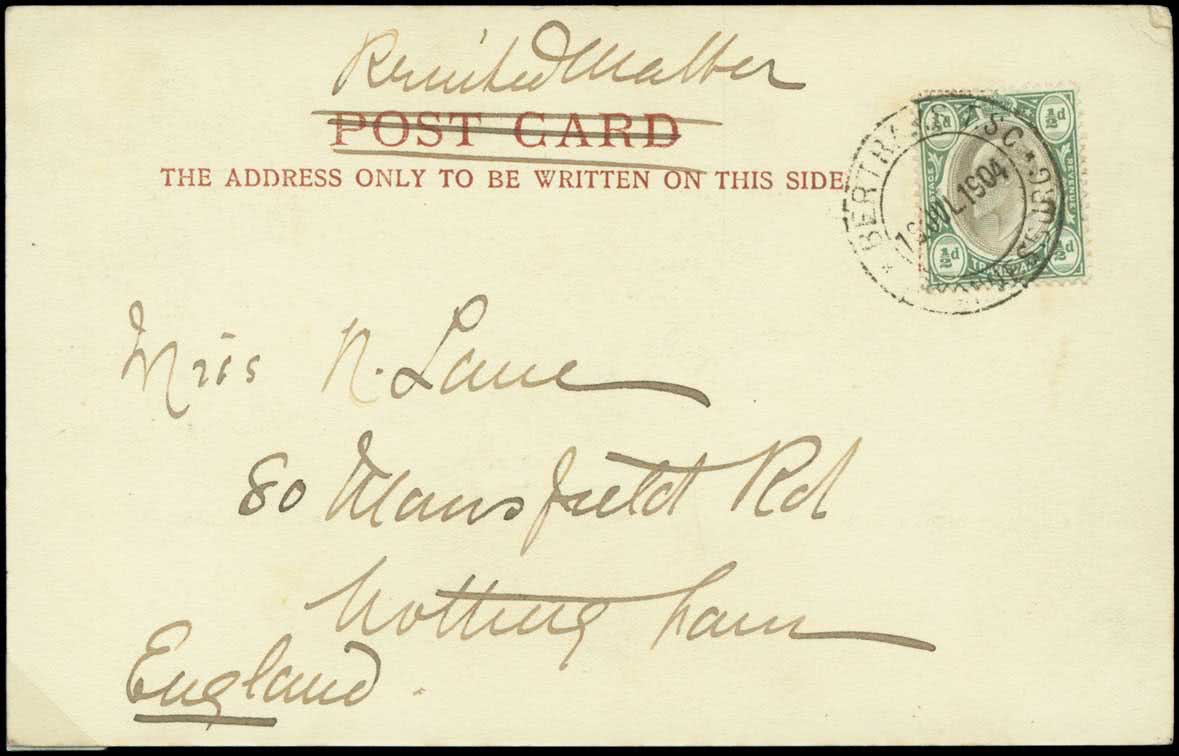 Printed Matter
POST CARD
THE ADDRESS ONLY TO BE WRITTEN ON THIS SIDE
½d ½d
POSTAGE REVENUE
½d ½d
BERTRAMS
JUL 1904
Miss N. Lane
80 Mansfield Rd
Nottingham
England.